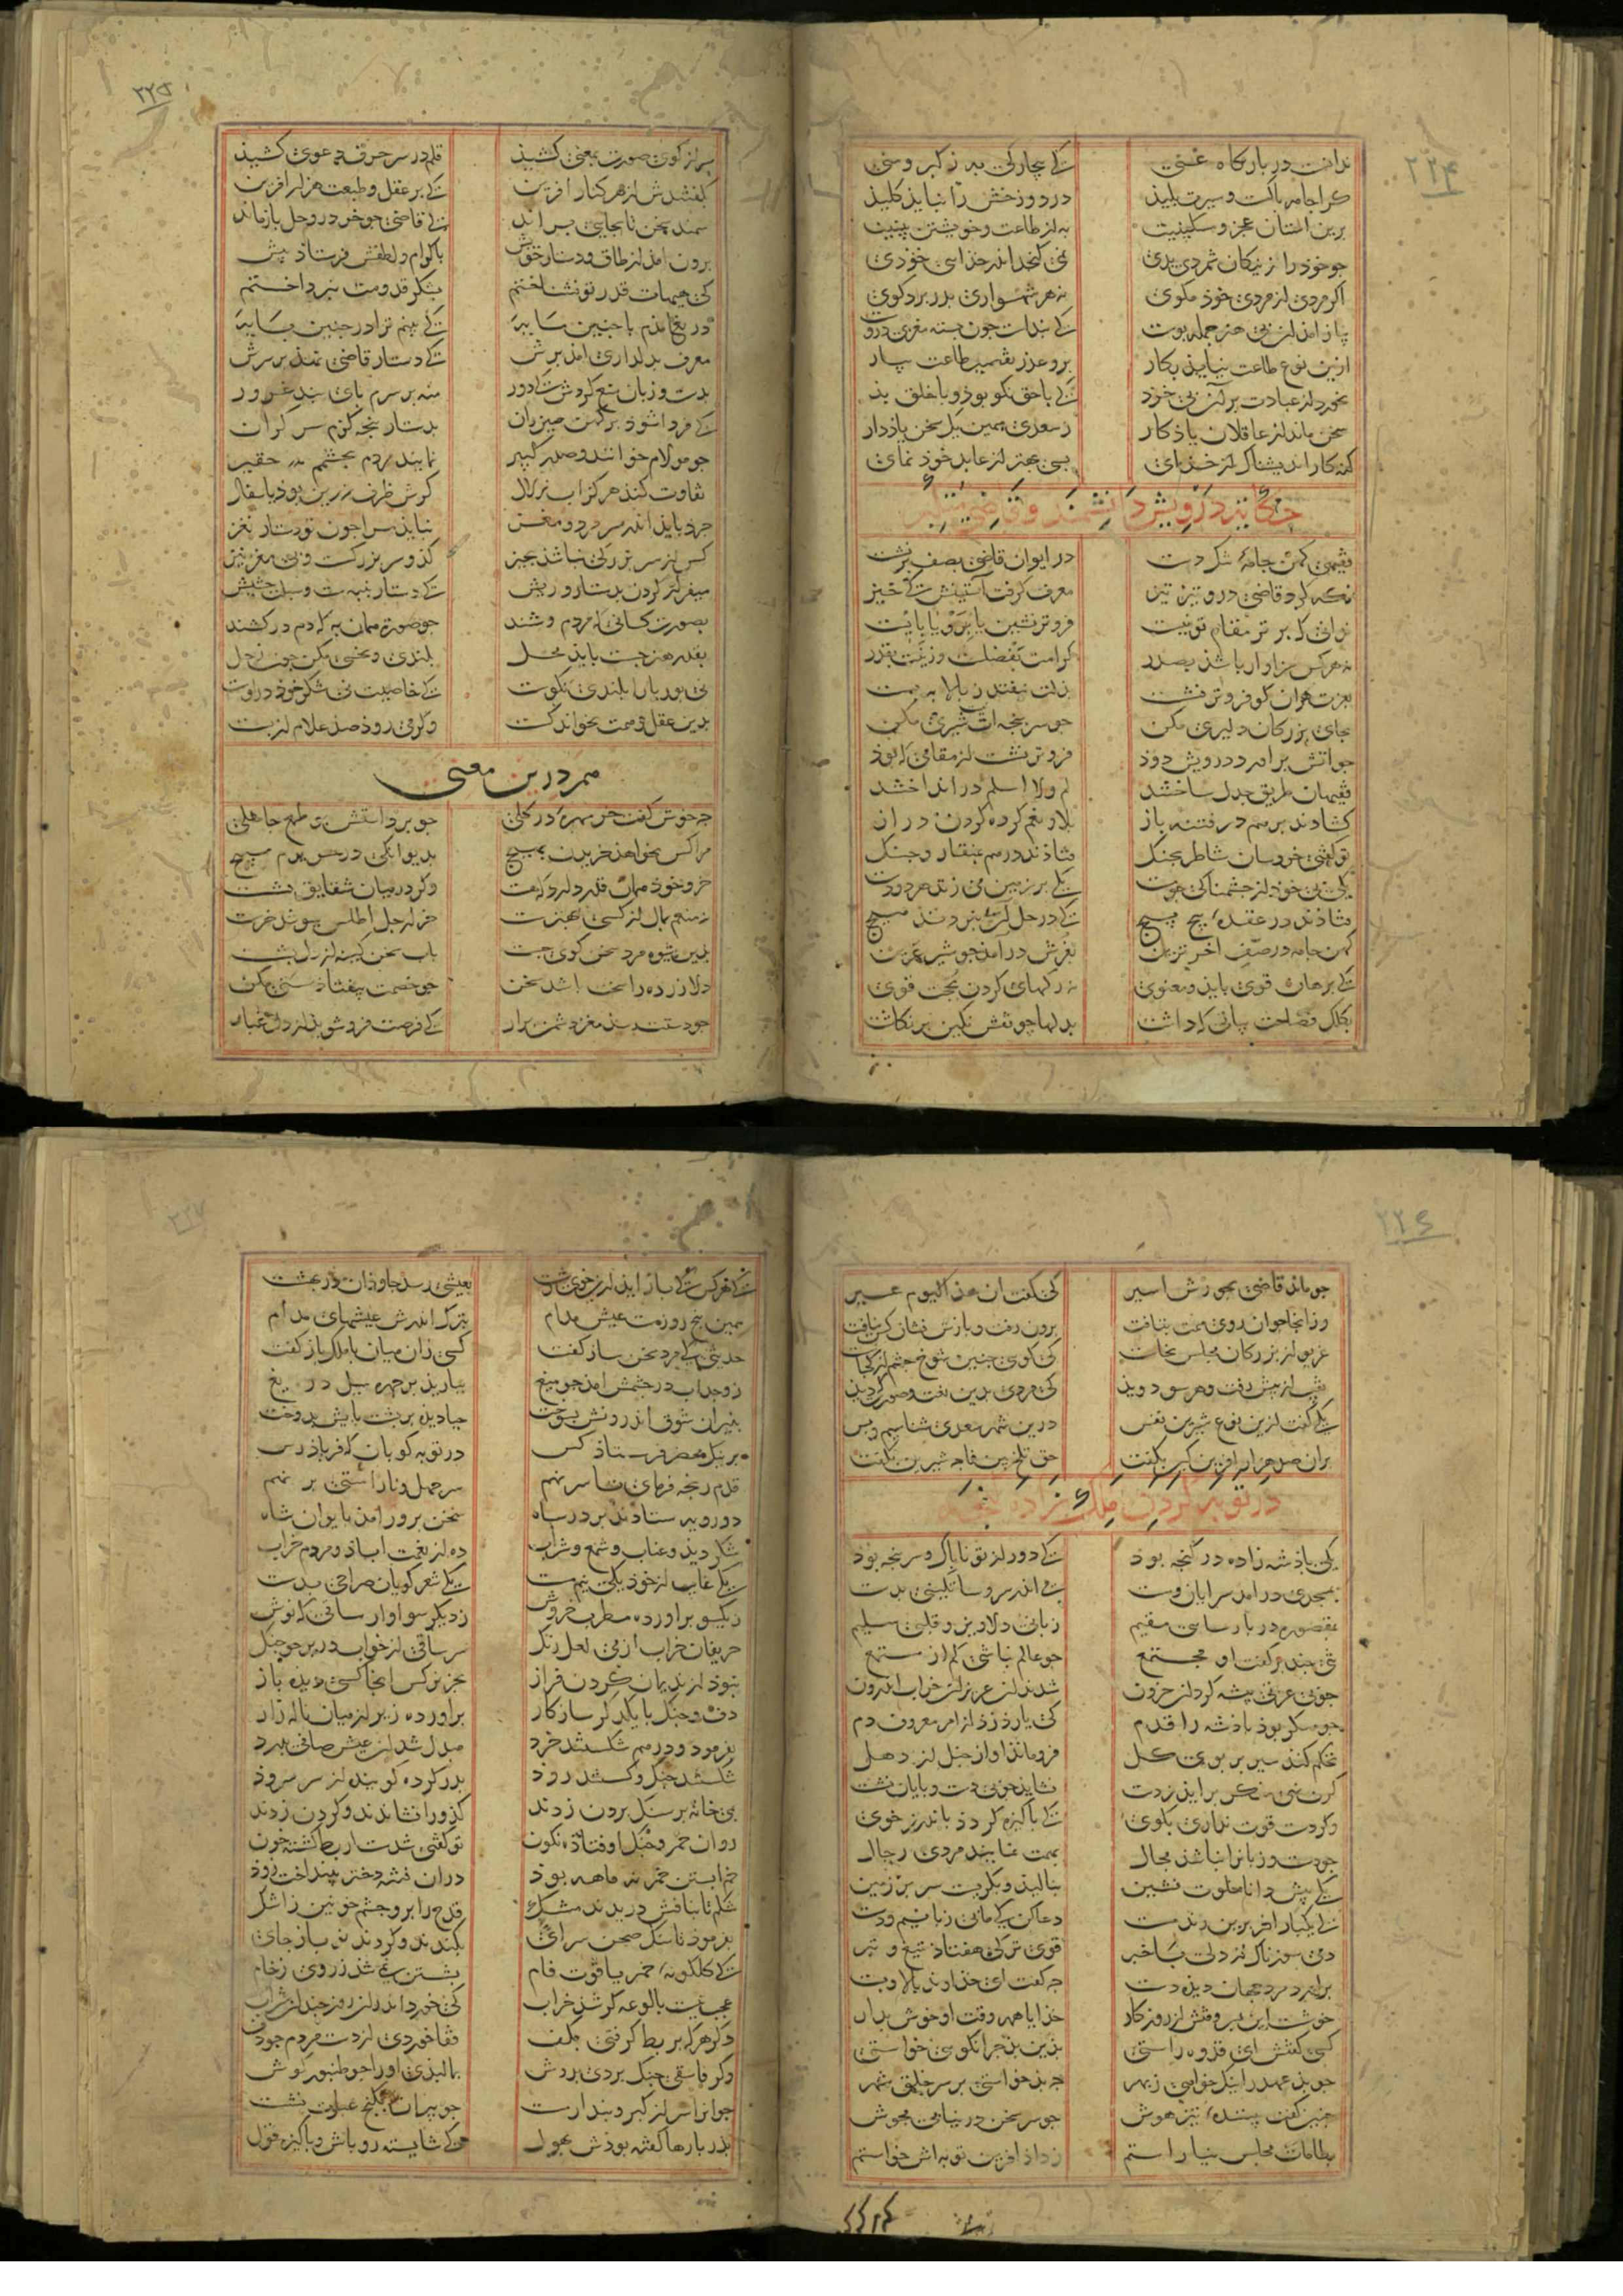 ۲۲۴
ندانست در بارکاه غنی کی بیچارکی به ز کبر و منی
کرا جامه پاکست و سیرت پلیذ در دوزخش را نبایذ کلیذ
برین استان عجز و مسکینیت به از طاعت و خویشتن بینیت
جو خوذ را ز نیکان شمردی بدی نمی کنجد اندر خذایی خوذی
اکر مردی از مردی خوذ مکوی نه هر شهسواری بدر برد کوی
پیاز امذ ان بی هنر جمله پوست کی بنداشت جون بسته مغزی دروست
ازین نوع طاعت نیایذ بکار برو عذر تقصیر طاعت بیار
نخورد از عبادت بر آن بی خرذ کی با حق نکو بوذ و با خلق بذ
سخن ماند از عاقلان یاذکار ز سعدی همین یک سخن یاذ دار
کنه کار اندیشناک از خذای بسی بهتر از عابد خوذ نمای
حکایت درویش دانشمند و قاضی متکبر
فقیهی کهن جامهٔ تنک دست در ایوان قاضی بصف بر نشست
نکه کرد قاضی درو تیز تیز معرف کرفت آستینش کی خیز
ندانی که برتر مقام تو نیست فروتر نشین یا برو یا بایست
نه هر کس سزاوار باشذ بصدر کرامت بفضلست و زینت بقدر
بعزت هران کو فروتر نشست بذلت نیفتد ز بالا به پست
بجای بزرکان دلیری مکن جو سر پنجه ات نیست شیری مکن
جو اتش براورد درویش دوذ فروتر نشست از مقامی که بوذ
فقیهان طریق جدل ساختند لم و لا اسلم در انداختند
کشادند بر هم در فتنه باز بلا و نعم کرده کردن دراز
تو کفتی خروسان شاطر بجنک فتاذند در هم بمنقار و جنک
یکی بی خوذ از خشمناکی جو مست یکی بر زمین می زند هر دو دست
فتاذند در عقدهٔ پیچ پیچ کی در حل آن ره نبردند هیچ
کهن جامه در صف اخر ترین بغرش درامذ جو شیر عرین
کی برهان قوی بایذ و معنوی نه رکهای کردن بحجت قوی
بکلک فصاحت بیانی که داشت بدلها جو نقش نکین بر نکاشت
۲۲۵
سر از کوی صورت بمعنی کشیذ قلم در سر حرف دعوی کشیذ
بکفتندش از هر کنار افرین کی بر عقل و طبعت هزار افرین
سمند سخن تا بجایی براند کی قاضی جو خر در وحل باز ماند
برون امذ از طاق و دستار خویش باکرام و لطفش فرستاذ پیش
کی هیهات قدر تو نشناختم بشکر قدومت نبرداختم
دریغ ایذم با جنین مایه کی بینم ترا در جنین پایه
معرف بدلداری امذ برش کی دستار قاضی نهذ بر سرش
بدست و زبان منع کردش کی دور منه بر سرم پای بند غرور
کی فردا شوذ بر کهن میزران بدستار پنجه کزم سر کران
جو مولام خوانند و صدر کبیر نمایند مردم بجشمم حقیر
تفاوت کنذ هرکز آب زلال کرش ظرف زرین بوذ یا سفال
خرد بایذ اندر سر مرد و مغز نبایذ مرا جون تو دستار نغز
کس از سر بزرکی نباشذ بجیز کذو سر بزرکست و بی مغز نیز
میفراز کردن بدستار و ریش کی دستار پنبه ست و سبلت حشیش
بصورت کسانی که مردم وشند جو صورت همان به که دم درکشند
بقدر هنر جست بایذ محل بلندی و نحسی مکن جون زحل
نی بوریا را بلندی نکوست کی خاصیت نی شکر خوذ دروست
بدین عقل و همت نخوانند کست وکر می روذ صد غلام از پست
هم درین معنی
جه خوش کفت خر مهره در کلی جو برداشتش پر طمع جاهلی
مرا کس نخواهذ خریدن بهیچ بدیوانکی در حریرم مپیچ
خزو خوذ همان قدر دارد که هست وکر در میان شقایق نشست
نه منعم بمال از کسی بهترست خر ار جل اطلس بپوشذ خرست
بدین شیوه مرد سخن کوی جست باب سخن کینه از دل بشست
دل ازرده را سخت باشد سخن جو خصمت بیفتاذ سستی مکن
جو دستت رسذ مغز دشمن برار کی فرصت فرو شویذ از دل غبار
۲۲۶
جو ماند قاضی بجورش اسیر کی کفت ان هذا لیوم عسیر
وزانجا جوان روی همت بتافت برون رفت و بازش نشان کس نیافت
غریو از بزرکان مجلس بخاست کی کویی جنین شوخ جشم از کجاست
نقیب از پیش رفت و هر سو دویذ کی مردی بدین نعت و صورت که دیذ
یکی کفت ازین نوع شیرین نفس درین شهر سعدی شناسیم و بس
بران صد هزار افرین کین بکفت حق تلخ بین تا جه شیرین بکفت
در توبه کردن ملک زاده کنجه
یکی پاذشه زاده در کنجه بوذ کی دور از تو ناپاک و سر پنجه بوذ
بمسجد درامد سرایان و مست می اندر سر و ساتکینی بدست
بمقصوره در پارسایی مقیم زبانی دلاویز و قلبی سلیم
تنی جند بر کفت او مجتمع جو عالم نباشی کم از مستمع
جو بی عزتی پیشه کرد ان حرون شدند ان عزیزان خراب اندرون
جو منکر بوذ پاذشه را قدم کی یارذ زذ از امر معروف دم
تحکم کند سیر بر بوی کل فرو ماند اواز جنک از دهل
کرت نهی منکر برایذ ز دست نشایذ جو بی دست و پایان نشست
وکر دست قوت نداری بکوی کی پاکیزه کرذذ باندرز خوی
جو دست و زبانرا نباشذ مجال بهمت نمایند مردی رجال
یکی پیش دانا خلوت نشین بنالیذ و بکریست سر بر زمین
کی یکبار اخر برین رند مست دعا کن کی ما بی زبانیم و دست
دمی سوزناک از دلی با خبر قوی تر کی هفتاذ تیغ و تبر
براورد مرد جهان دیذه دست جه کفت ای خذاوند بالا و پست
خوشست این پسر وقتش از روزکار خذایا همه وقت او خوش بدار
کسی کفتش ای قدوه راستی بدین بذ جرا نکویی خواستی
جو بذ عهد را نیک خواهی ز بهر جه بذ خواستی بر سر خلق شهر
جنین کفت بیننده تیز هوش جو سر سخن در نیابی مجوش
بطامات مجلس نیاراستم ز داذ افرین توبه اش خواستم
۲۲۷
کی هر کس کی باز ایذ از خوی زشت بعیشی رسد جاوذان در بهشت
همین پنج روزست عیش مدام بترک اندرش عیشهای مدام
حدیثی کی مرد سخن ساز کفت کسی زان میان با ملک باز کفت
ز وجد اب در جشمش امذ جو میغ بباریذ بر جهره سیل دریغ
بنیران شوق اندرونش بسوخت حیا دیذه بر پشت پایش بدوخت
بر نیک محضر فرستاذ کس در توبه کوبان که فریاذ رس
قدم رنجه فرمای تا سر نهم سر جهل و ناراستی بر نهم
دو رویه ستاذند بر در سپاه سخن پرور امذ بایوان شاه
شکر دیذ و عناب و شمع و شراب ده از نعمت اباذ و مردم خراب
یکی غایب از خوذ یکی نیم مست یکی شعر کویان صراحی بدست
ز یکسو براورده مطرب خروش ز دیکر سو اواز ساقی که نوش
حریفان خراب از می لعل رنک سر ساقی از خواب در بر جو جنک
نبوذ از ندیمان کردن فراز بجز نرکس انجا کسی دیذه باز
دف و جنک با یکدکر سازکار براورده زیر از میان ناله زار
بفرموذ و درهم شکستند خرد مبدل شد ان عیش صافی بدرد
شکستند جنک و کسستند روذ بدر کرده کوینده از سر سروذ
بمی خانه بر سنک بر دن زدند کذو را نشاندند و کردن زدند
روان خمر و جنک اوفتاذه نکون تو کفتی شدست از بط کشته خون
خم ابستن خمر نه ماهه بوذ دران فتنه دختر بینداخت زوذ
شکم تا بنافش دریدند مشک قدح را برو جشم خونین ز اشک
بفرموذ تا سنک صحن سرای بکندند و کردند نو باز جای
کی کلکونهٔ خمر یاقوت فام بشستن نمی شذ ز روی رخام
عجب نیست بالوعه کر شذ خراب کی خورد اندران روز جندان شراب
دکر هر که بربط کرفتی بکف قفا خوردی از دست مردم جو دف
وکر فاسقی جنک بردی بدوش بمالیذی او را جو طنبور کوش
جوانرا سر از کبر و پندار مست جو پیران بکنج عبادت نشست
پذر بارها کفته بوذش بهول کی شایسته رو باش و پاکیزه قول